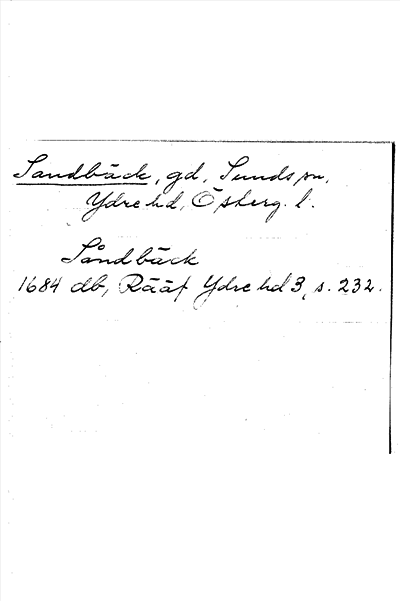 Sandbäck, gd, Sunds sn,
Ydre hd, Östergl.
Såndbäck
1684 db, Rääf Ydre hd 3, s. 232.